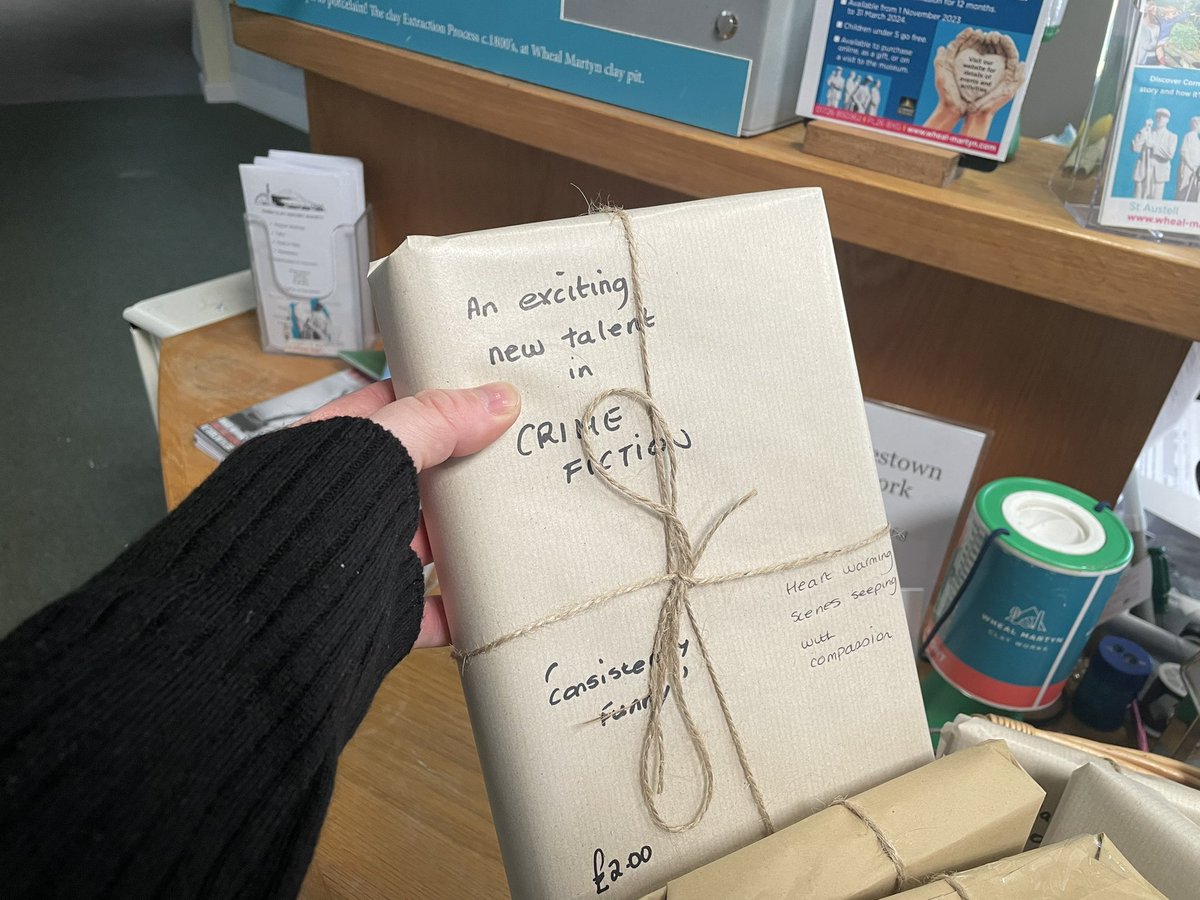 porcelain! The clay Extraction Process c.1800's, at Wheal Martyn clay pit.
for 12 months.
Available from 1 November 2023
to 31 March 2024.
Children under 5 go free.
Available to purchase
online, as a gift, or on
a visit to the museum.
Visit our
website for
details of
events and
activities
www.wheal-martyn.com
Discover Corn
story and how it's
St Austell
www.wheal-ma
An exciting
new talent
in
CRIME
FICTION
Heart warming
scenes seeping
with
compassion
Consistently
funny
£2.00
estown
ork
WHEAL MARTYN
CLAY WORKS